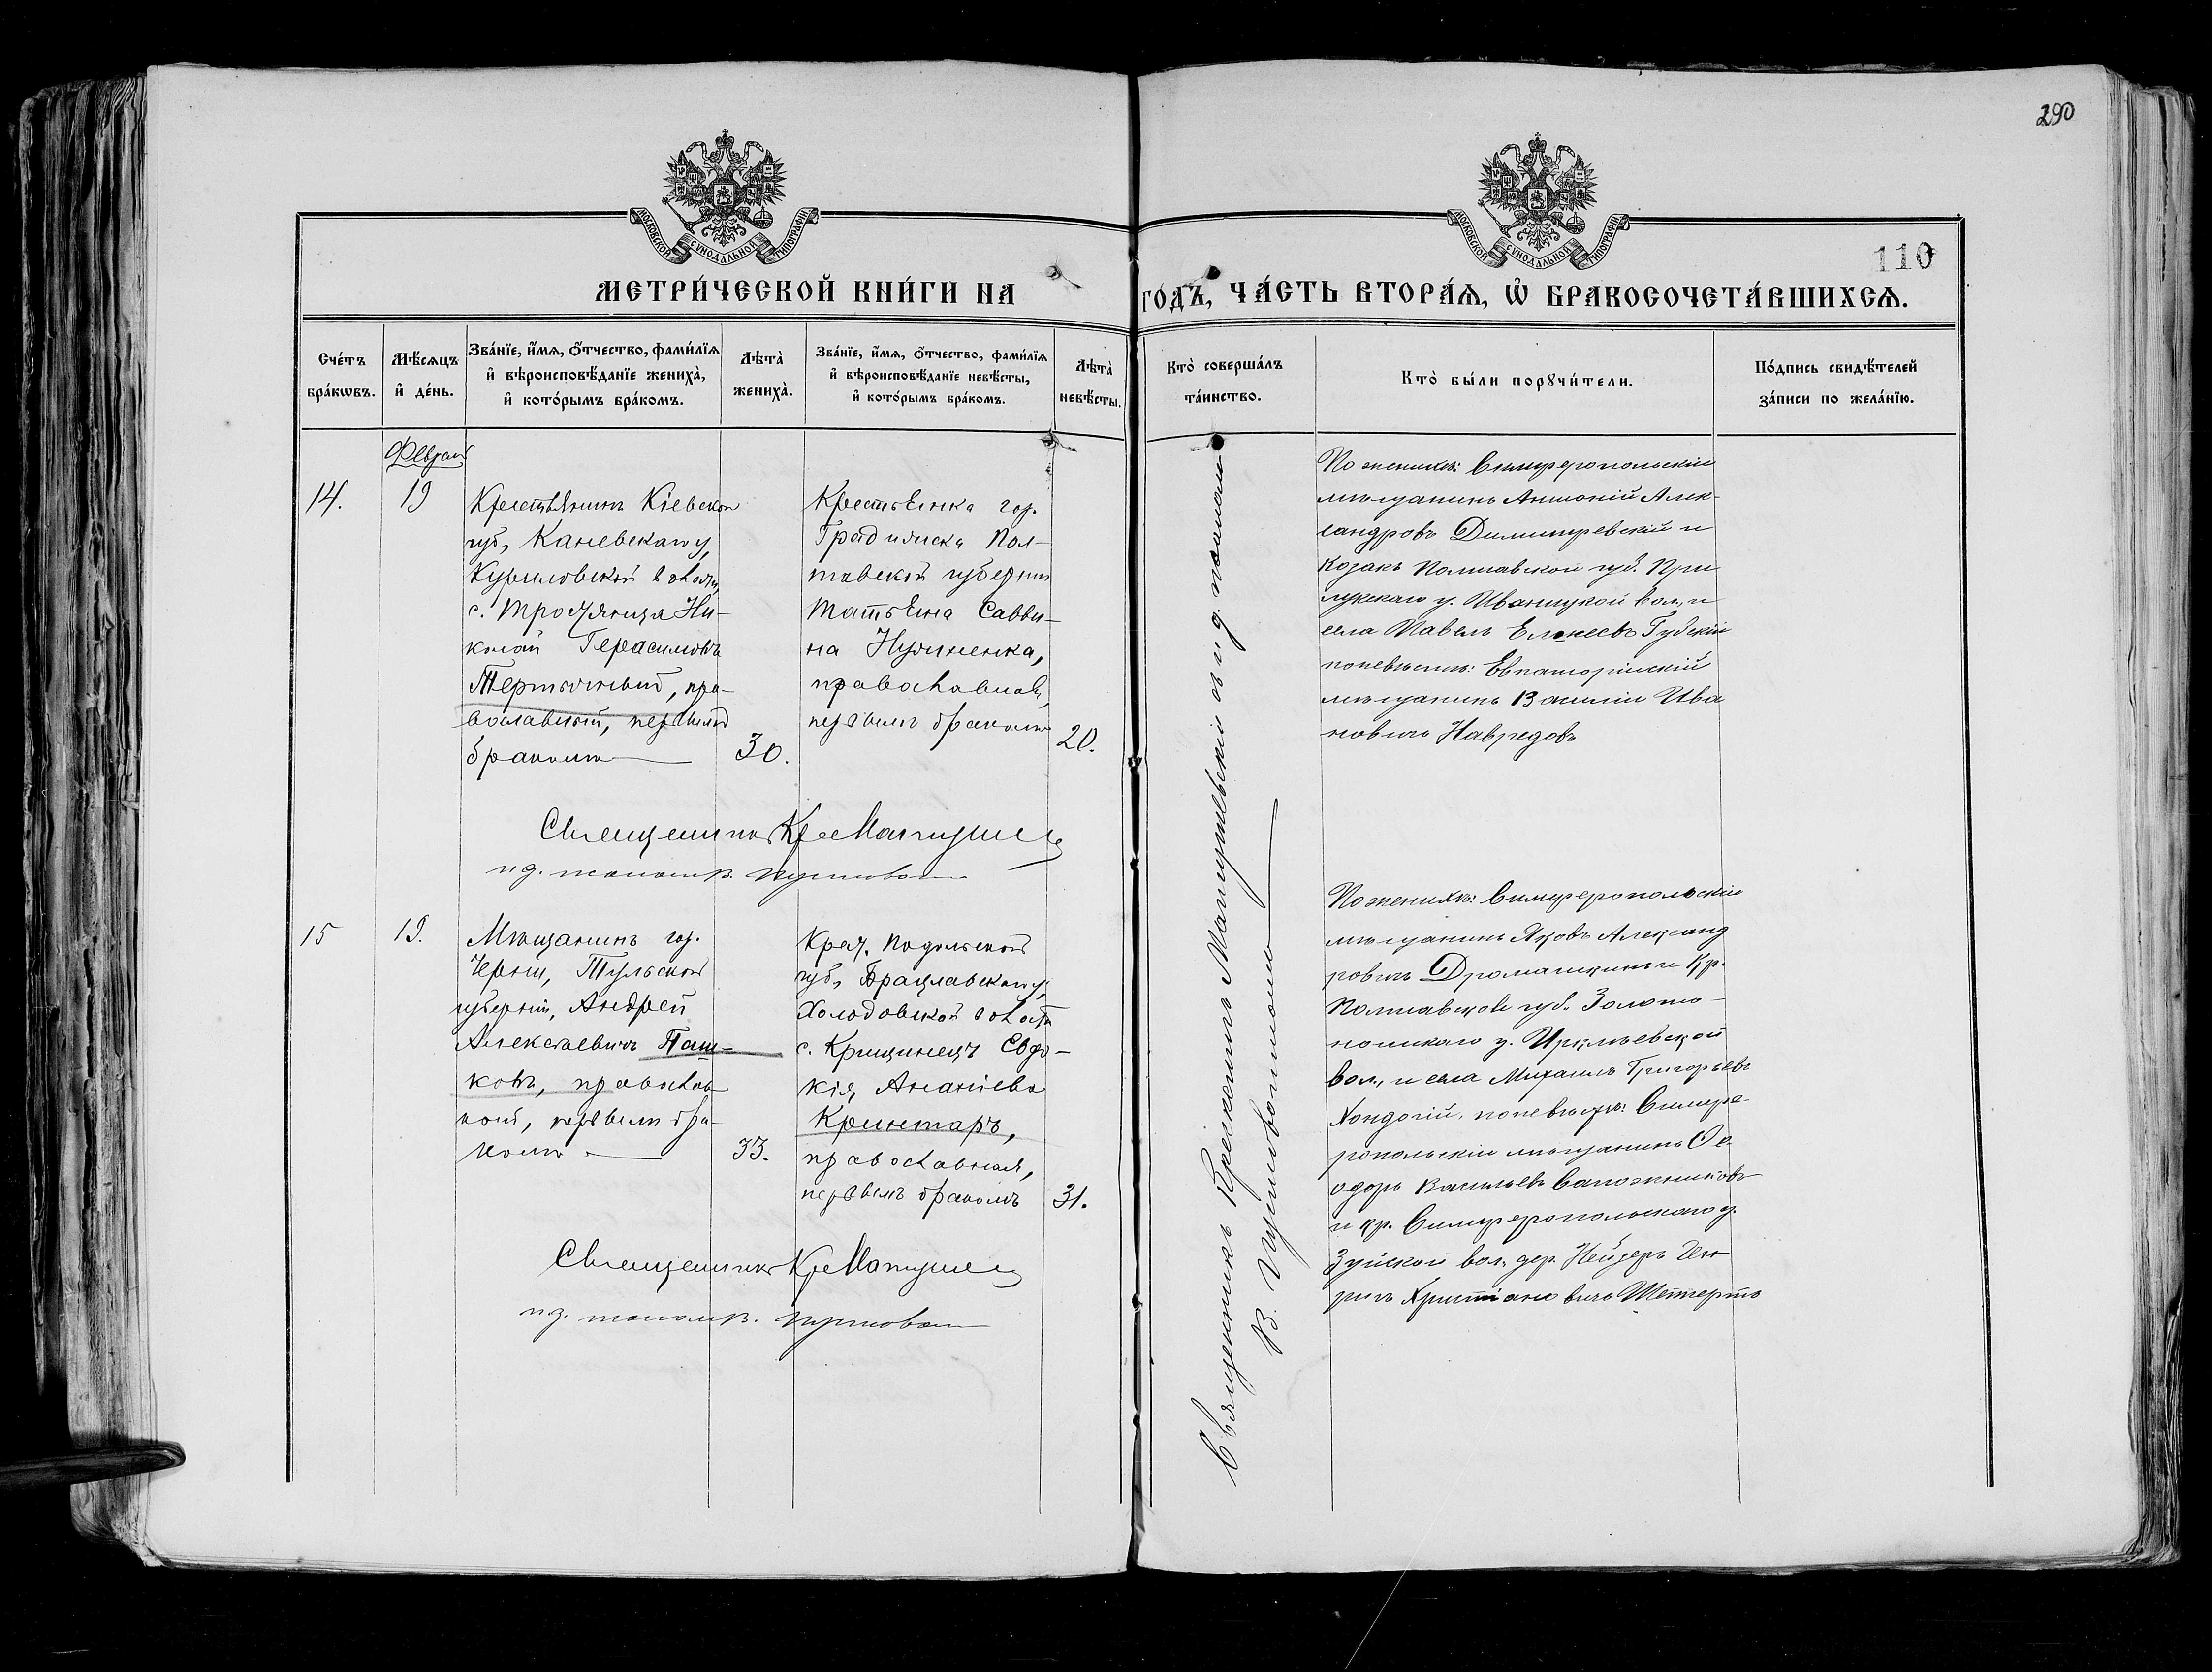 290
МОСКОВСКОЙ СѴНОДАЛЬНОЙ ТИПОГРАФІИ
МОСКОВСКОЙ СѴНОДАЛЬНОЙ ТИПОГРАФІИ
110
МЕТРИ́ЧЕСКОЙ КНИ́ГИ НА
ГО́ДЪ, ЧА́СТЬ ВТОРА́Ѧ, Ѡ҆ БРАКОСОЧЕТА́ВШИХСѦ.
Сче́тъ
бра́кѡвъ.
Мѣ́сяцъ
и҆ де́нь.
Зва́нїе, и҆́мѧ, ѻ҆́тчество, фами́лїѧ
и҆ вѣроисповѣ́данїе жениха̀,
и҆ кото́рымъ бра́комъ.
Лѣта̀
жениха̀.
Зва́нїе, и҆́мѧ, ѻ҆́тчество, фами́лїѧ
и҆ вѣроисповѣ́данїе невѣ́сты,
и҆ кото́рымъ бра́комъ.
Лѣта̀
невѣ́сты.
Кто̀ соверша́лъ
та́инство.
Кто̀ бы́ли порꙋчи́тели.
По́дпись свидѣ́телей
за́писи по жела́нїю.
Февраль
14.
19
Крестьянинъ Кіевской
губ., Каневскаго у.,
Куриловской волости,
с. Трощянца Ни-
колай Герасимовъ
Тертычный, пра-
вославный, первымъ
бракомъ
30.
Крестьянка гор.
Градижска Пол-
тавской губерніи
Татьяна Савви-
на
православная,
первымъ бракомъ
20.
Священникъ Кр. Матушев
и д. псаломщ.
По женихѣ: Симферопольскій
мѣщанинъ Антоній Алек-
сандровъ Димитревскій и
козакъ Полтавской губ. При
лукскаго у. Иваницкой вол. и
села Павелъ Елисеевъ Губскій
по невѣстѣ: Евпаторійскій
мѣщанинъ Василій Ива
новичъ Навредовъ
Священникъ Крескентъ Матушевскій и и. д. псалом
В.
15
19.
Мѣщанинъ гор.
Черни, Тульской
губерніи, Андрей
Алексѣевичъ Паш-
ковъ, православ
ный, первымъ бра-
комъ
33.
Крест. Подольской
губ., Брацлавскаго у.,
Холодовской волости
с. Крищинецъ Евдо-
кія Ананіева
Кринтаръ,
православная,
первымъ бракомъ
31.
Священникъ Кр. Матушев
и д. псаломщ.
По женихѣ: Симферопольскій
мѣщанинъ Яковъ Александ
ровичъ Дромашкинъ и кр.
Полтавской губ. Золото-
ношскаго у. Ирклѣевской
вол., и села Михаилъ Григорьевъ
Хондогій, по невѣстѣ: Симфе-
ропольскій мѣщанинъ Ѳе-
одоръ Васильевъ Сапожниковъ
и кр. Симферопольскаго у.
Зуйской вол. дер. Нейзерцъ Ген
рихъ Христіановичъ